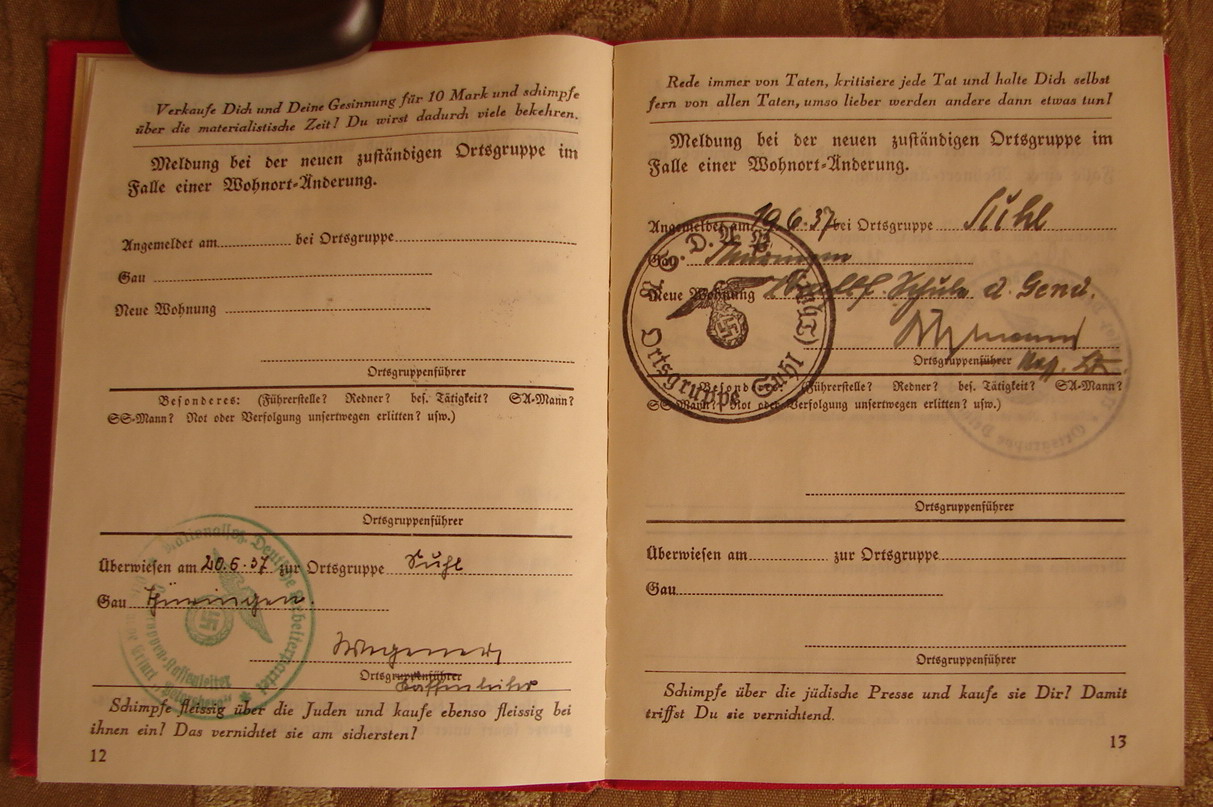 Verkaufe Dich und Deine Gesinnung für 10 Mark und schimpfe
über die materialistische Zeit! Du wirst dadurch viele bekehren.
Meldung bei der neuen zuständigen Ortsgruppe im
Falle einer Wohnort-Änderung.
Angemeldet am bei Ortsgruppe
Gau
Neue Wohnung
Ortsgruppenführer
Besonderes: (Führerstelle? Redner? bes. Tätigkeit? SA-Mann?
SS-Mann? Not oder Verfolgung unsertwegen erlitten? usw.)
Ortsgruppenführer
Überwiesen am 20.6.37 zur Ortsgruppe Suhl
Gau Thüringen.
Wegener
Ortsgruppenführer
Kassenleiter
Nationalsoz. Deutsche Arbeiterpartei
Schimpfe fleissig über die Juden und kaufe ebenso fleissig bei
ihnen ein! Das vernichtet sie am sichersten!
12
Rede immer von Taten, kritisiere jede Tat und halte Dich selbst
fern von allen Taten, umso lieber werden andere dann etwas tun!
Meldung bei der neuen zuständigen Ortsgruppe im
Falle einer Wohnort-Änderung.
Angemeldet am 19.6.37 bei Ortsgruppe Suhl
Gau Thüringen
Neue Wohnung Schule d. Gend.
Ortsgruppenführer
N.S.D.A.P.
Ortsgruppe Suhl (Thür.)
Besonderes: (Führerstelle? Redner? bes. Tätigkeit? SA-Mann?
SS-Mann? Not oder Verfolgung unsertwegen erlitten? usw.)
Ortsgruppenführer
Überwiesen am zur Ortsgruppe
Gau
Ortsgruppenführer
Schimpfe über die jüdische Presse und kaufe sie Dir! Damit
triffst Du sie vernichtend.
13